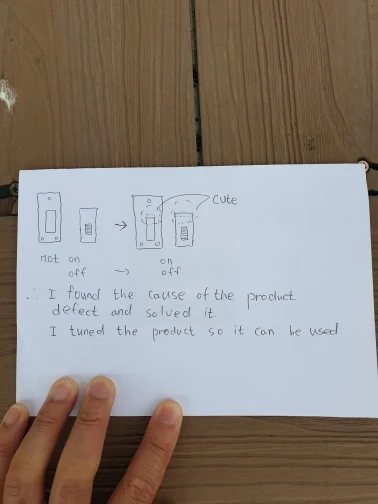 cute
not on
off → on
off
∴ I found the cause of the product
defect and solved it.
I tuned the product so it can be used